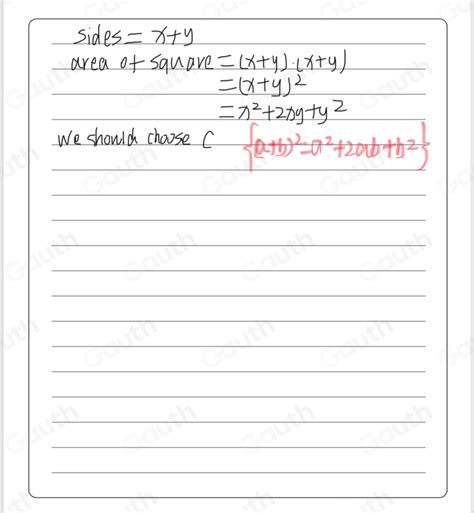 sides = x+y
area of square = (x+y)·(x+y)
= (x+y)²
= x²+2xy+y²
we should choose C {(a+b)²=a²+2ab+b²}
Gauth